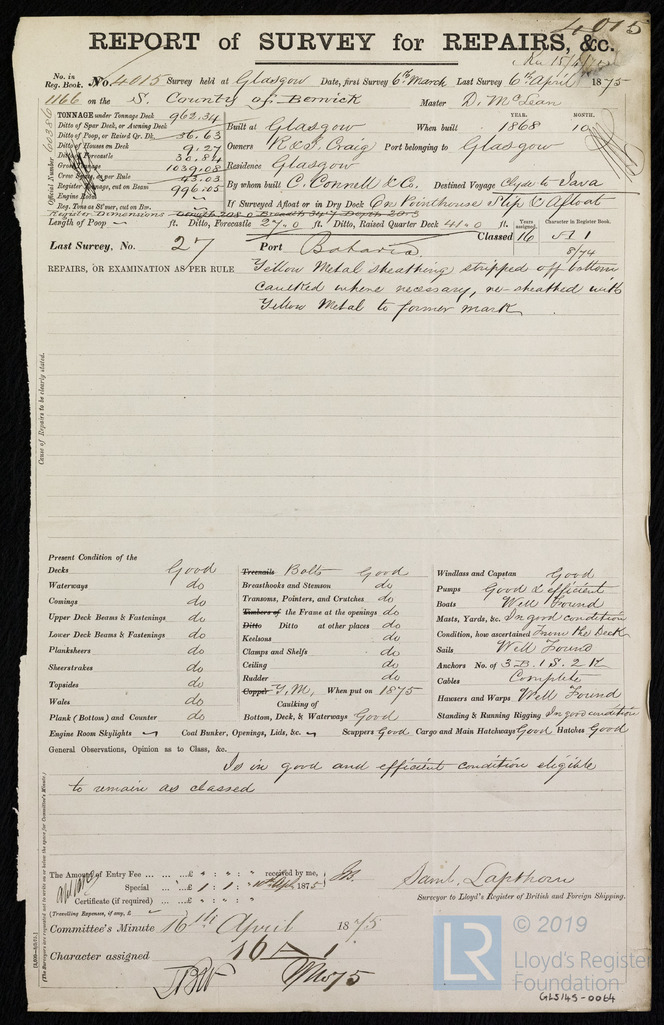 4015
REPORT of SURVEY for REPAIRS, &c.
No. in Reg. Book. No. 4015 Survey held at Glasgow Date, first Survey 6th March Last Survey 6th April 1875
1166 on the S. County of Berwick Master D. McLean
TONNAGE under Tonnage Deck 962.34
Ditto of Spar Deck, or Awning Deck
Ditto of Poop, or Raised Qr. Dk. 36.63
Ditto of Houses on Deck 9.27
Ditto of Forecastle 30.84
Gross Tonnage 1039.08
Crew Space, as per Rule 43.03
Register Tonnage, cut on Beam 996.05
Engine Room
Reg. Tons as St'mer, cut on Bm.
Official Number 60386
Built at Glasgow When built YEAR. 1868 MONTH. 10
Owners R & J. Craig Port belonging to Glasgow
Residence Glasgow
By whom built C. Connell & Co. Destined Voyage Clyde to Java
If Surveyed Afloat or in Dry Dock On Pointhouse Slip & Afloat
Register Dimensions Length 209.0 Breadth 34.7 Depth 20.5
Length of Poop ft. Ditto, Forecastle 27.0 ft. Ditto, Raised Quarter Deck 41.0 ft.
Years assigned. Character in Register Book.
Classed 16 A 1
8/74
Last Survey, No. 27 Port Batavia
REPAIRS, OR EXAMINATION AS PER RULE Yellow Metal sheathing stripped off bottom
caulked where necessary, re-sheathed with
Yellow Metal to former mark
Cause of Repairs to be clearly stated.
Present Condition of the
Decks Good
Waterways do
Comings do
Upper Deck Beams & Fastenings do
Lower Deck Beams & Fastenings do
Planksheers do
Sheerstrakes do
Topsides do
Wales do
Plank (Bottom) and Counter do
Treenails Bolts Good
Breasthooks and Stemson do
Transoms, Pointers, and Crutches do
Timbers of the Frame at the openings do
Ditto Ditto at other places do
Keelsons do
Clamps and Shelfs do
Ceiling do
Rudder do
Copper Y.M. When put on 1875
Caulking of
Bottom, Deck, & Waterways Good
Windlass and Capstan Good
Pumps Good & efficient
Boats Well Found
Masts, Yards, &c. In good condition
Condition, how ascertained From the Deck
Sails Well Found
Anchors No. of 3 B. 1 S. 2 K
Cables Complete
Hawsers and Warps Well Found
Standing & Running Rigging In good condition
Engine Room Skylights Coal Bunker, Openings, Lids, &c. Scuppers Good Cargo and Main Hatchways Good Hatches Good
General Observations, Opinion as to Class, &c.
Is in good and efficient condition eligible
to remain as classed
The Amount of Entry Fee ... ... ...£ : : received by me,
Special ... ...£ 1 : 1 : 1875
Certificate (if required) ...£ : :
(Travelling Expenses, if any, £
Saml. Lapthorn
Surveyor to Lloyd's Register of British and Foreign Shipping.
Committee's Minute 16th April 1875
Character assigned 16 A 1
© 2019
LR Lloyd's Register
Foundation
GLS145-0064